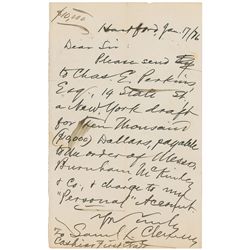 $10,000
Hartford Jan. 17/76
Dear Sir:
Please send
to Chas E. Perkins
Esq., 14 State St
a New York draft
for Ten Thousand
($10,000) Dollars, payable
to the order of Messrs
Burnham McKinley
& Co., & charge to my
"Personal" Account.
Yrs Truly
Saml. L. Clemens
To
Cashier First Nat